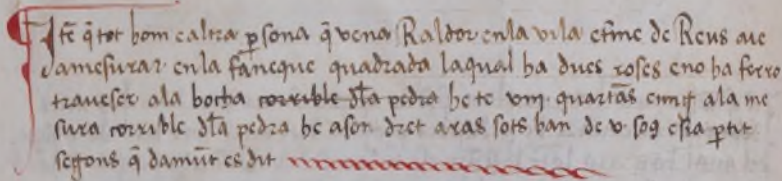 Itē q̄ tot hom e altra p̱sona q̄ vena Raldor en la vila e t̄me de Reus aie
damesurar en la faneque quadrada la qual ha dues roses e no ha ferro
traueser a la bocha corrible dl̄a pedra he te vııȷ quartās e
sura corrible dl̄a pedra he a son dret aras sots ban de v so₉ esta p̱tit
segons q̄ damūt es dit